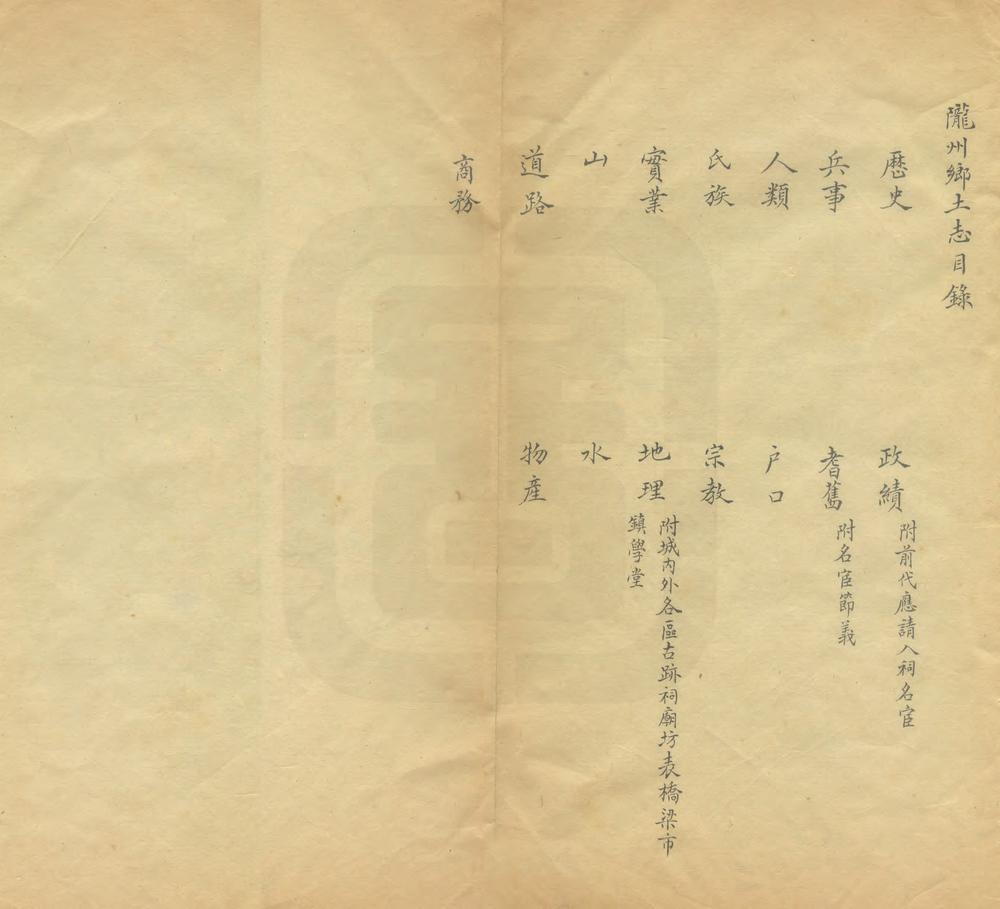 隴州鄉土志目錄
歷史
政績 附前代應請入祠名宦
兵事
耆舊 附名宦節義
人類
戶口
氏族
宗教
實業
地理 附城內外各區古跡祠廟坊表橋梁市
鎮學堂
山
水
道路
物產
商務